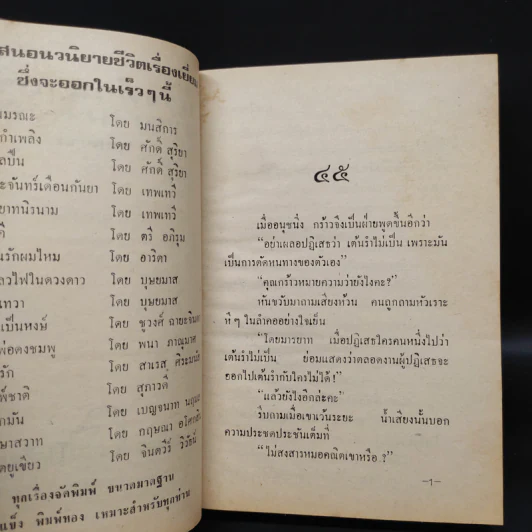 สนอนวนิยายชีวิตเรื่องเยี่ยม
ซึ่งจะออกในเร็วๆนี้
มรณะ โดย มนสิการ
กำเพลิง โดย ศักดิ์ สุริยา
โดย ศักดิ์ สุริยา
ะจันทร์เดือนกันยา โดย เทพเทวี
ยาทนิรนาม โดย เทพเทวี
ดี โดย ตรี อภิรุม
นรักผมไหม โดย อาริตา
ลวไฟในดวงดาว โดย บุษยมาส
เทวา โดย บุษยมาส
เป็นหงษ์ โดย ชูวงศ์
พ่อดงชมพู โดย พนา
รัก โดย สาเรส
พี่ชาติ โดย สุภาวดี
กมัน โดย เบญจนาท
ษาสวาท โดย กฤษณา อโศกสิน
ตยูเขียว โดย จินตวีร์ วิวัธน์
ทุกเรื่องจัดพิมพ์ ขนาดมาตฐาน
แข็ง พิมพ์ทอง เหมาะสำหรับทุกท่าน
๔๕
เมื่ออนุชนิ่ง กร้าวจึงเป็นฝ่ายพูดขึ้นอีกว่า
“อย่าเผลอปฏิเสธว่า เต้นรำไม่เป็น เพราะมัน
เป็นการตัดหนทางของตัวเอง”
“คุณกร้าวหมายความว่ายังไงคะ?”
หันขวับมาถามเสียงห้วน คนถูกถามหัวเราะ
หึๆ ในลำคออย่างใจเย็น
“โดยมารยาท เมื่อปฏิเสธใครคนหนึ่งไปว่า
เต้นรำไม่เป็น ย่อมแสดงว่าตลอดงานผู้ปฏิเสธจะ
ออกไปเต้นรำกับใครไม่ได้!”
“แล้วยังไงอีกล่ะคะ”
รีบถามเมื่อเขาเว้นระยะ น้ำเสียงนั้นบอก
ความประชดประชันเต็มที่
“ไม่สงสารหมอคณิตเขาหรือ?”
—1—